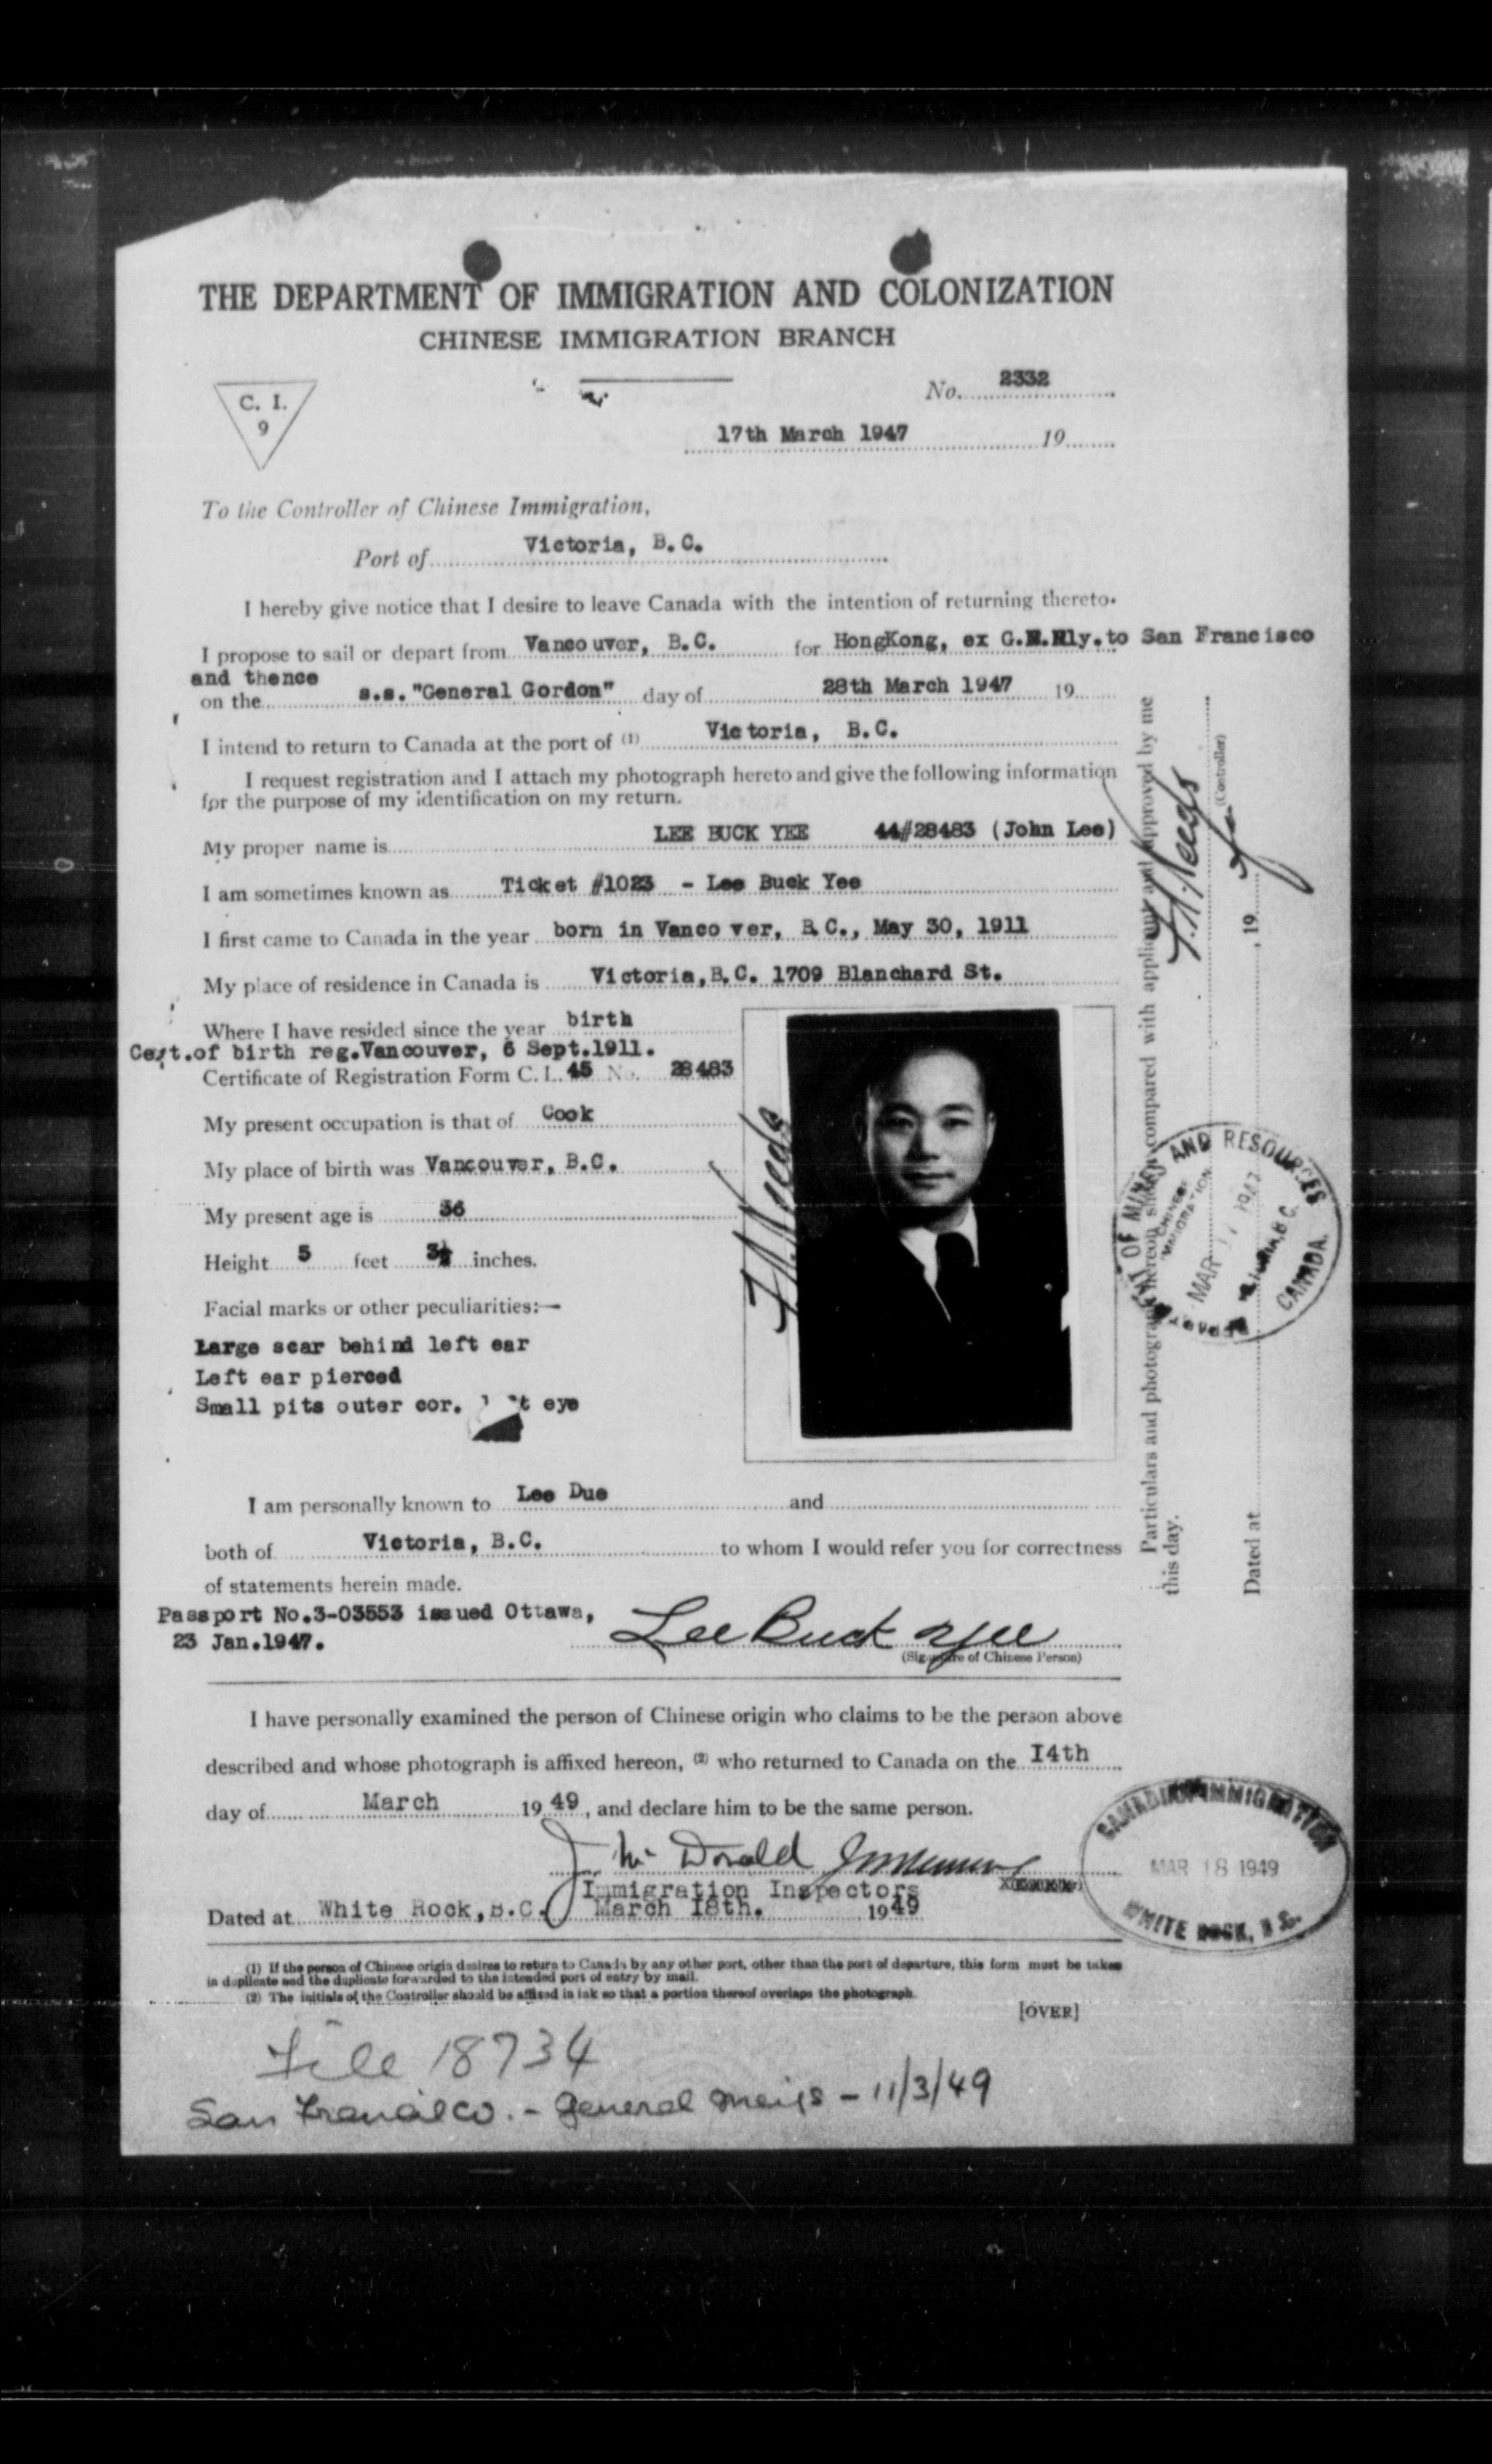 THE DEPARTMENT OF IMMIGRATION AND COLONIZATION
CHINESE IMMIGRATION BRANCH
C. I.
9
No. 2332
17th March 1947 19
To the Controller of Chinese Immigration,
Port of Victoria, B.C.
I hereby give notice that I desire to leave Canada with the intention of returning thereto.
I propose to sail or depart from Vancouver, B.C. for HongKong, ex G.N.Rly.to San Francisco
and thence
on the s.s."General Gordon" day of 28th March 1947 19
I intend to return to Canada at the port of (1) Victoria, B.C.
I request registration and I attach my photograph hereto and give the following information
for the purpose of my identification on my return.
My proper name is LEE BUCK YEE 44#28483 (John Lee)
I am sometimes known as Ticket #1023 - Lee Buck Yee
I first came to Canada in the year born in Vanco ver, B.C., May 30, 1911
My place of residence in Canada is Victoria,B.C. 1709 Blanchard St.
Where I have resided since the year birth
Cert.of birth reg.Vancouver, 6 Sept.1911.
Certificate of Registration Form C. I. 45 No. 28483
My present occupation is that of Cook
My place of birth was Vancouver, B.C.
My present age is 36
Height 5 feet inches.
Facial marks or other peculiarities:—
Large scar behind left ear
Left ear pierced
Small pits outer cor. eye
I am personally known to Lee Due and
both of Victoria, B.C. to whom I would refer you for correctness
of statements herein made.
Passport No.3-03553 issued Ottawa,
23 Jan.1947.
Lee Buck Yee
(Signature of Chinese Person)
I have personally examined the person of Chinese origin who claims to be the person above
described and whose photograph is affixed hereon, (2) who returned to Canada on the I4th
day of March 19 49, and declare him to be the same person.
J Mc Donald
Immigration Inspectors
Dated at White Rock,B.C. March I8th. 1949
(1) If the person of Chinese origin desires to return to Canada by any other port, other than the port of departure, this form must be taken
in duplicate and the duplicate forwarded to the intended port of entry by mail.
(2) The initials of the Controller should be affixed in ink so that a portion thereof overlaps the photograph.
[OVER]
File 18734
San Francisco. - General Meigs - 11/3/49
Particulars and photograph hereon compared with applicant and approved by me
this day.
(Controller)
Dated at , 19
OF MINES AND RESOURCES
CHINESE
IMMIGRATION
MAR 17 1947
Victoria, B.C.
CANADA.
CANADIAN IMMIGRATION
MAR 18 1949
WHITE ROCK, B.C.